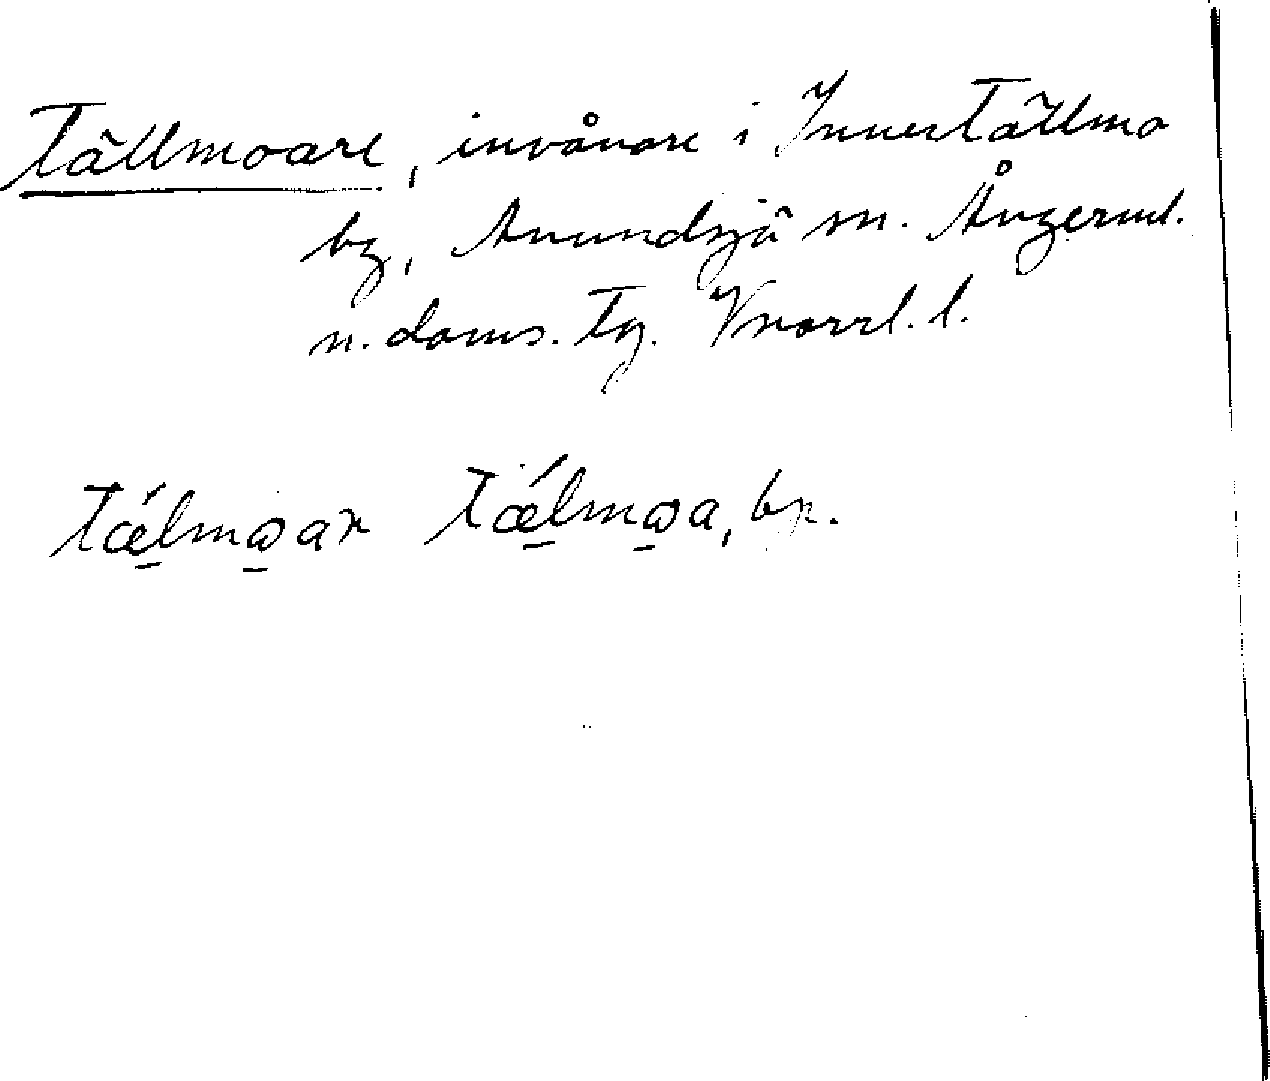 Tällmoare, invånare i InnerTällmo
by, Anundsjö sn. Ångerml.
n. doms. Tg. Vnorrl. l.
tǽlmωar tǽlmωa, bp.